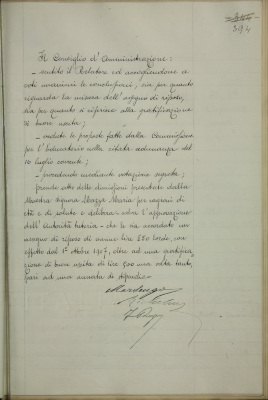 394
Il Consiglio d'Amministrazione:
— sentito il Relatore ed associandosi a
voti unanimi le conclusioni, sia per quanto
riguarda la misura dell'assegno di riposo,
sia per quanto si riferisce alla gratificazione
di buon uscita;
— vedute le proposte fatte dalla Commissione
per l'Educatorio nella citata adunanza del
10 luglio corrente;
— procedendo mediante votazione segreta;
prende atto delle dimissioni presentate dalla
Maestra Signora Maria per ragioni di
età e di salute e delibera — salvo l'approvazione
dell'Autorità tutoria — che le sia accordato un
assegno di riposo di annue lire 280 lorde, con
effetto dal 1° Ottobre 1907, oltre ad una gratifica
zione di buon uscita di lire 500 una volta tanto,
pari ad una annata di stipendio.